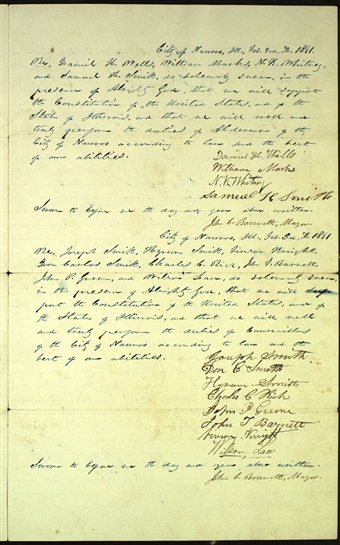 City of Nauvoo, Ill., Feb. 3rd, D. 1841.
We, Daniel H. Wells, William Marks, N. K. Whitney,
and Samuel H. Smith, do solemnly swear, in the
presence of Almighty God, that we will support
the Constitution of the United States, and of the
State of Illinois, and that we will well and
truly perform the duties of Aldermen of the
City of Nauvoo according to law and the best
of our abilities.
Daniel H. Wells
William Marks
N. K. Whitney
Samuel H Smith
Sworn to before me the day and year above written.
John C. Bennett, Mayor
City of Nauvoo, Ill., Feb. 3rd, D. 1841
We, Joseph Smith, Hyrum Smith, Vinson Knight,
Don Carlos Smith, Charles C. Rich, Jn. T. Barnett,
John P. Green, and Wilson Law, do solemnly swear,
in the presence of Almighty God, that we will sup
port the Constitution of the United States, and of
the State of Illinois, and that we will well
and truly perform the duties of Councillors
of the City of Nauvoo according to law and the
best of our abilities.
Joseph Smith
Don C Smith
Hyrum Smith
Charles C Rich
John P Greene
John T Barnett
Vinson Knight
Wilson Law
Sworn to before me the day and year above written.
John C. Bennett, Mayor